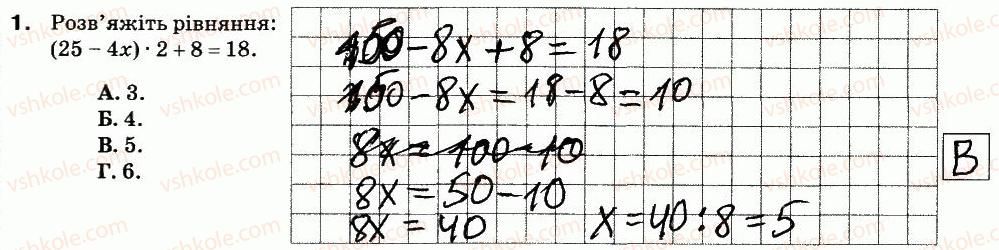 1. Розв’яжіть рівняння:
(25 – 4x) · 2 + 8 = 18.
А. 3.
Б. 4.
В. 5.
Г. 6.
50 – 8x + 8 = 18
50 – 8x = 18 – 8 = 10
8x = 100 – 10
8x = 50 – 10
8x = 40 x = 40 : 8 = 5
В
vshkole.com